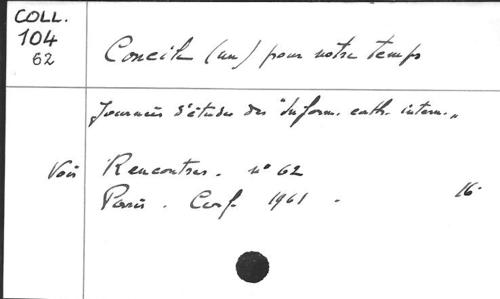 COLL.
104
62
Concile (un) pour notre temps
Journées d'études des "Inform. cath. intern."
Voir Rencontres. n° 62
Paris. Cerf. 1961. 16°